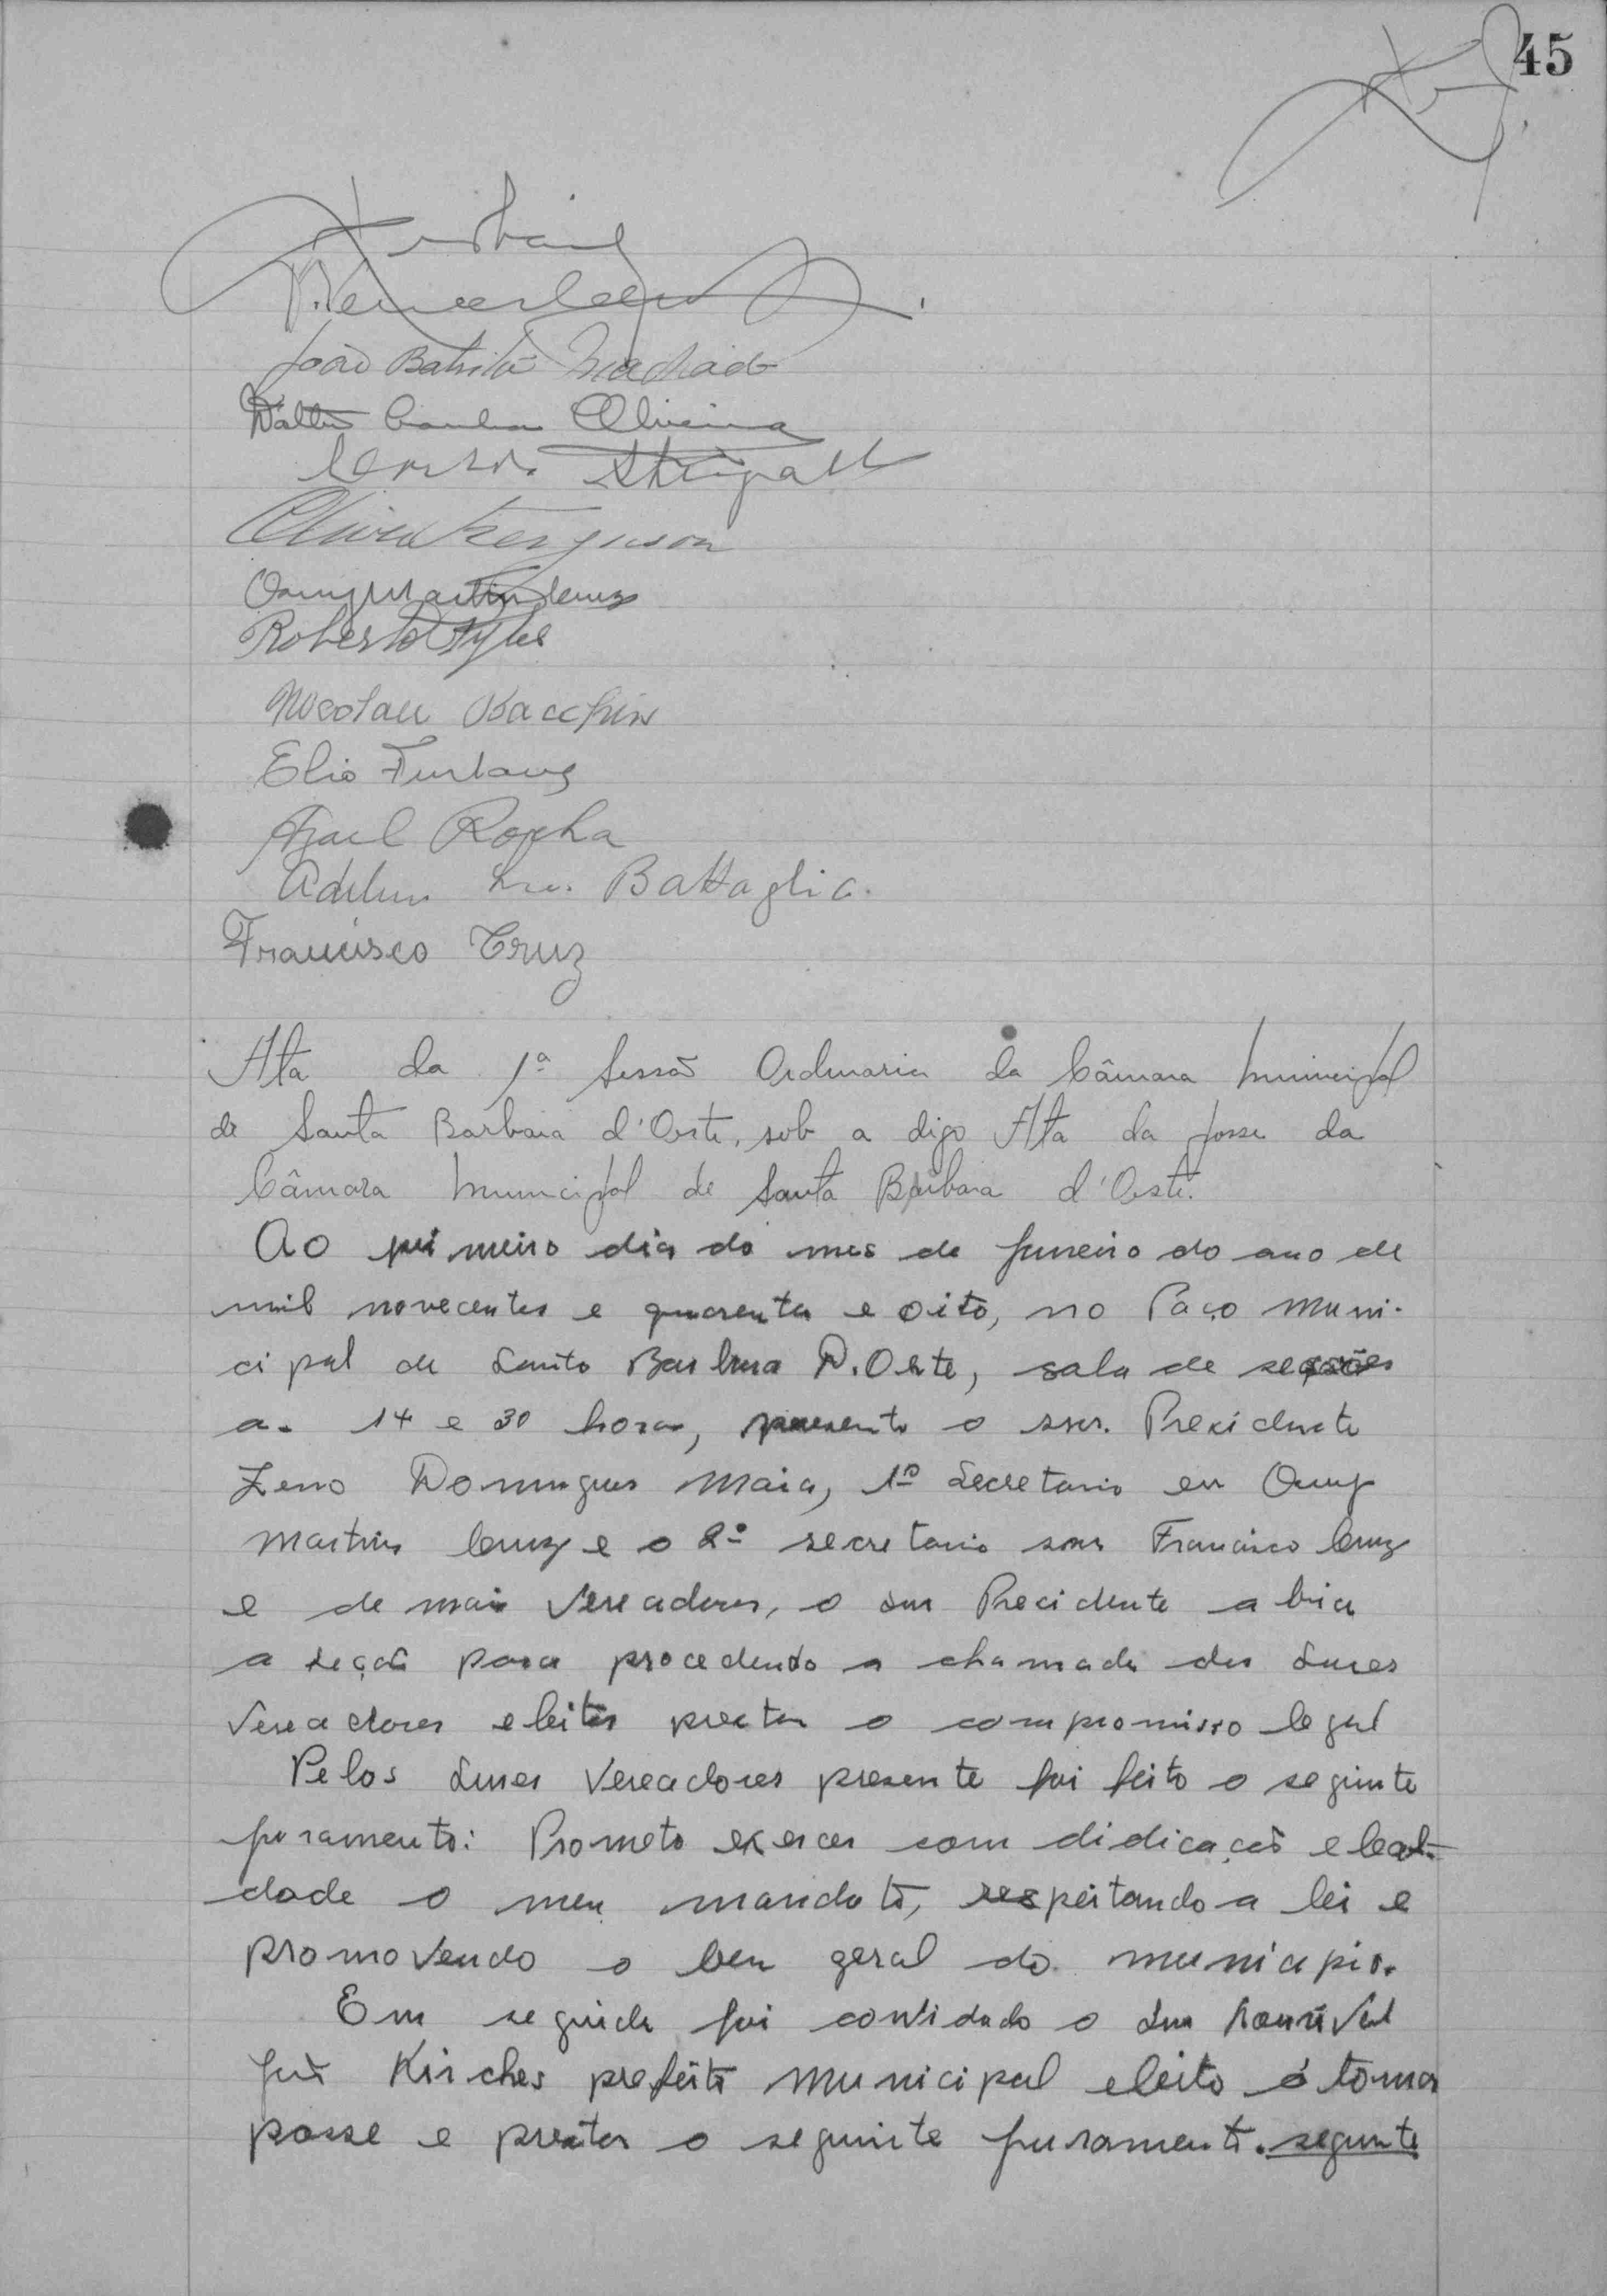 45
João Batista Machado
Walter Oliveira
Oliver Ferguson
Osmy Martins Cruz
Roberto Pyles
Nicolau Bacchin
Elio Furlans
Israel Rocha
Battaglia.
Francisco Cruz
Ata da 1ª Sessão Ordinaria da Câmara Municipal
de Santa Barbara d'Oeste, sob a digo Ata da posse da
Câmara Municipal de Santa Bárbara d'Oeste.
Ao primeiro dia do mes de Janeiro do ano de
mil novecentos e quarenta e oito, no Paço Muni-
cipal de Santa Barbara D.Oeste, sala de sessões
as 14 e 30 horas, presente o snr. Presidente
Zeno Domingues Maia, 1º Secretario eu Osmy
Martins Cruz e o 2º secretario snr Francisco Cruz
e de mais Vereadores, o snr Presidente abriu
a seção para procedendo a chamada dos Snres
Vereadores eleitos prestar o compromisso legal
Pelos Snres Vereadores presente foi feito o seguinte
juramento: Prometo exercer com didicação e leal-
dade o meu mandato, respeitando a lei e
promovendo o bem geral do municipio.
Em seguida foi convidado o Snr
José Kirches prefeito Municipal eleito á tomar
posse e prestar o seguinte juramento. segunte